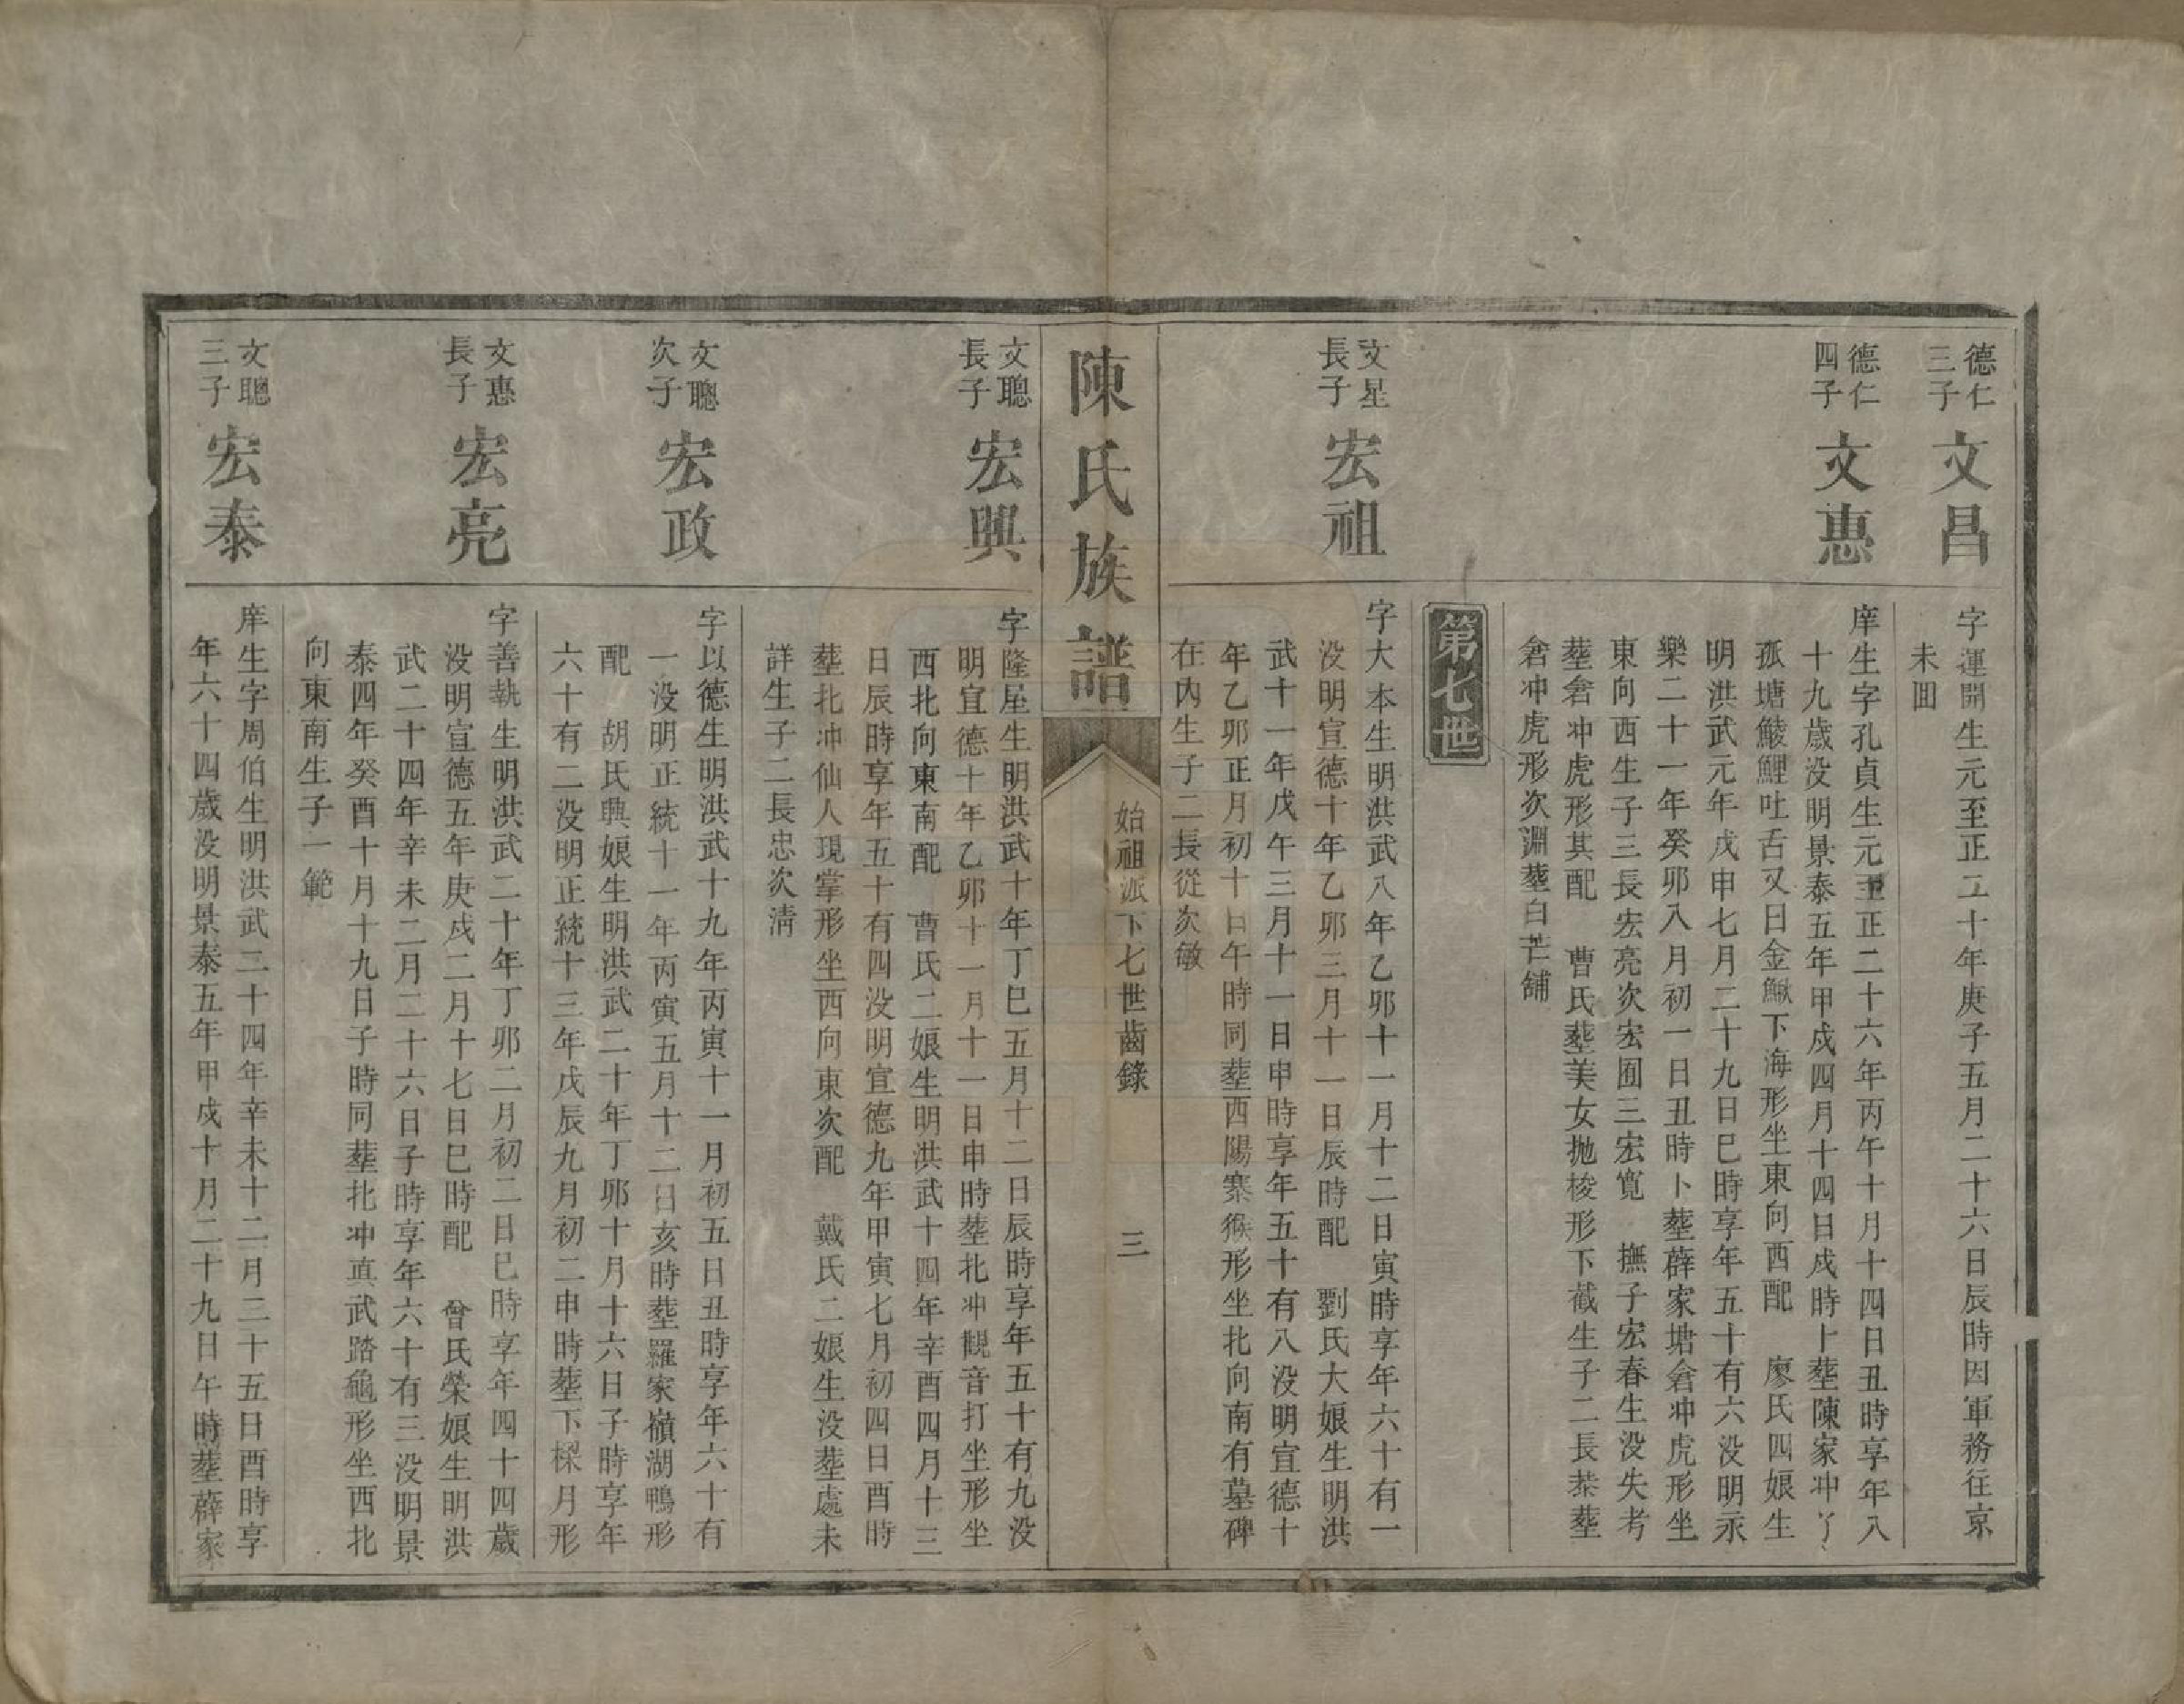 德仁
三子
文昌
字運開生元至正二十年庚子五月二十六日辰時因軍務往京
未囬
德仁
四子
文惠
庠生字孔貞生元至正二十六年丙午十月十四日丑時享年八
十九歲没明景泰五年甲戍四月十四日戍時卜塟陳家冲了
孤塘鯪鯉吐舌又曰金鰍下海形坐東向西配　廖氏四娘生
明洪武元年戊申七月二十九日巳時享年五十有六没明永
樂二十一年癸卯八月初一日丑時卜塟薛家塘倉冲虎形坐
東向西生子三長宏亮次宏囿三宏寬　撫子宏春生没失考
塟倉冲虎形其配　曹氏塟美女抛梭形下截生子二長恭塟
倉冲虎形次淵塟白芒舖
第七世
文星
長子
宏祖
字大本生明洪武八年乙卯十一月十二日寅時享年六十有一
没明宣德十年乙卯三月十一日辰時配　劉氏大娘生明洪
武十一年戊午三月十一日申時享年五十有八没明宣德十
年乙卯正月初十日午時同塟西陽寨猴形坐北向南有墓碑
在内生子二長從次敏
陳氏族譜
始祖派下七世齒錄
三
文聰
長子
宏興
字隆星生明洪武十年丁巳五月十二日辰時享年五十有九没
明宣德十年乙卯十一月十一日申時塟北冲觀音打坐形坐
西北向東南配　曹氏二娘生明洪武十四年辛酉四月十三
日辰時享年五十有四没明宣德九年甲寅七月初四日酉時
塟北冲仙人現掌形坐西向東次配　戴氏二娘生没塟處未
詳生子二長忠次淸
文聰
次子
宏政
字以德生明洪武十九年丙寅十一月初五日丑時享年六十有
一没明正統十一年丙寅五月十二日亥時塟羅家嶺湖鴨形
配　胡氏興娘生明洪武二十年丁卯十月十六日子時享年
六十有二没明正統十三年戊辰九月初二申時塟下樑月形
文惠
長子
宏亮
字善執生明洪武二十年丁卯二月初二日巳時享年四十四歲
没明宣德五年庚戍二月十七日巳時配　曾氏榮娘生明洪
武二十四年辛未二月二十六日子時享年六十有三没明景
泰四年癸酉十月十九日子時同塟北冲真武踏龜形坐西北
向東南生子一範
文聰
三子
宏泰
庠生字周伯生明洪武二十四年辛未十二月三十五日酉時享
年六十四歲没明景泰五年甲戍十月二十九日午時塟薛家